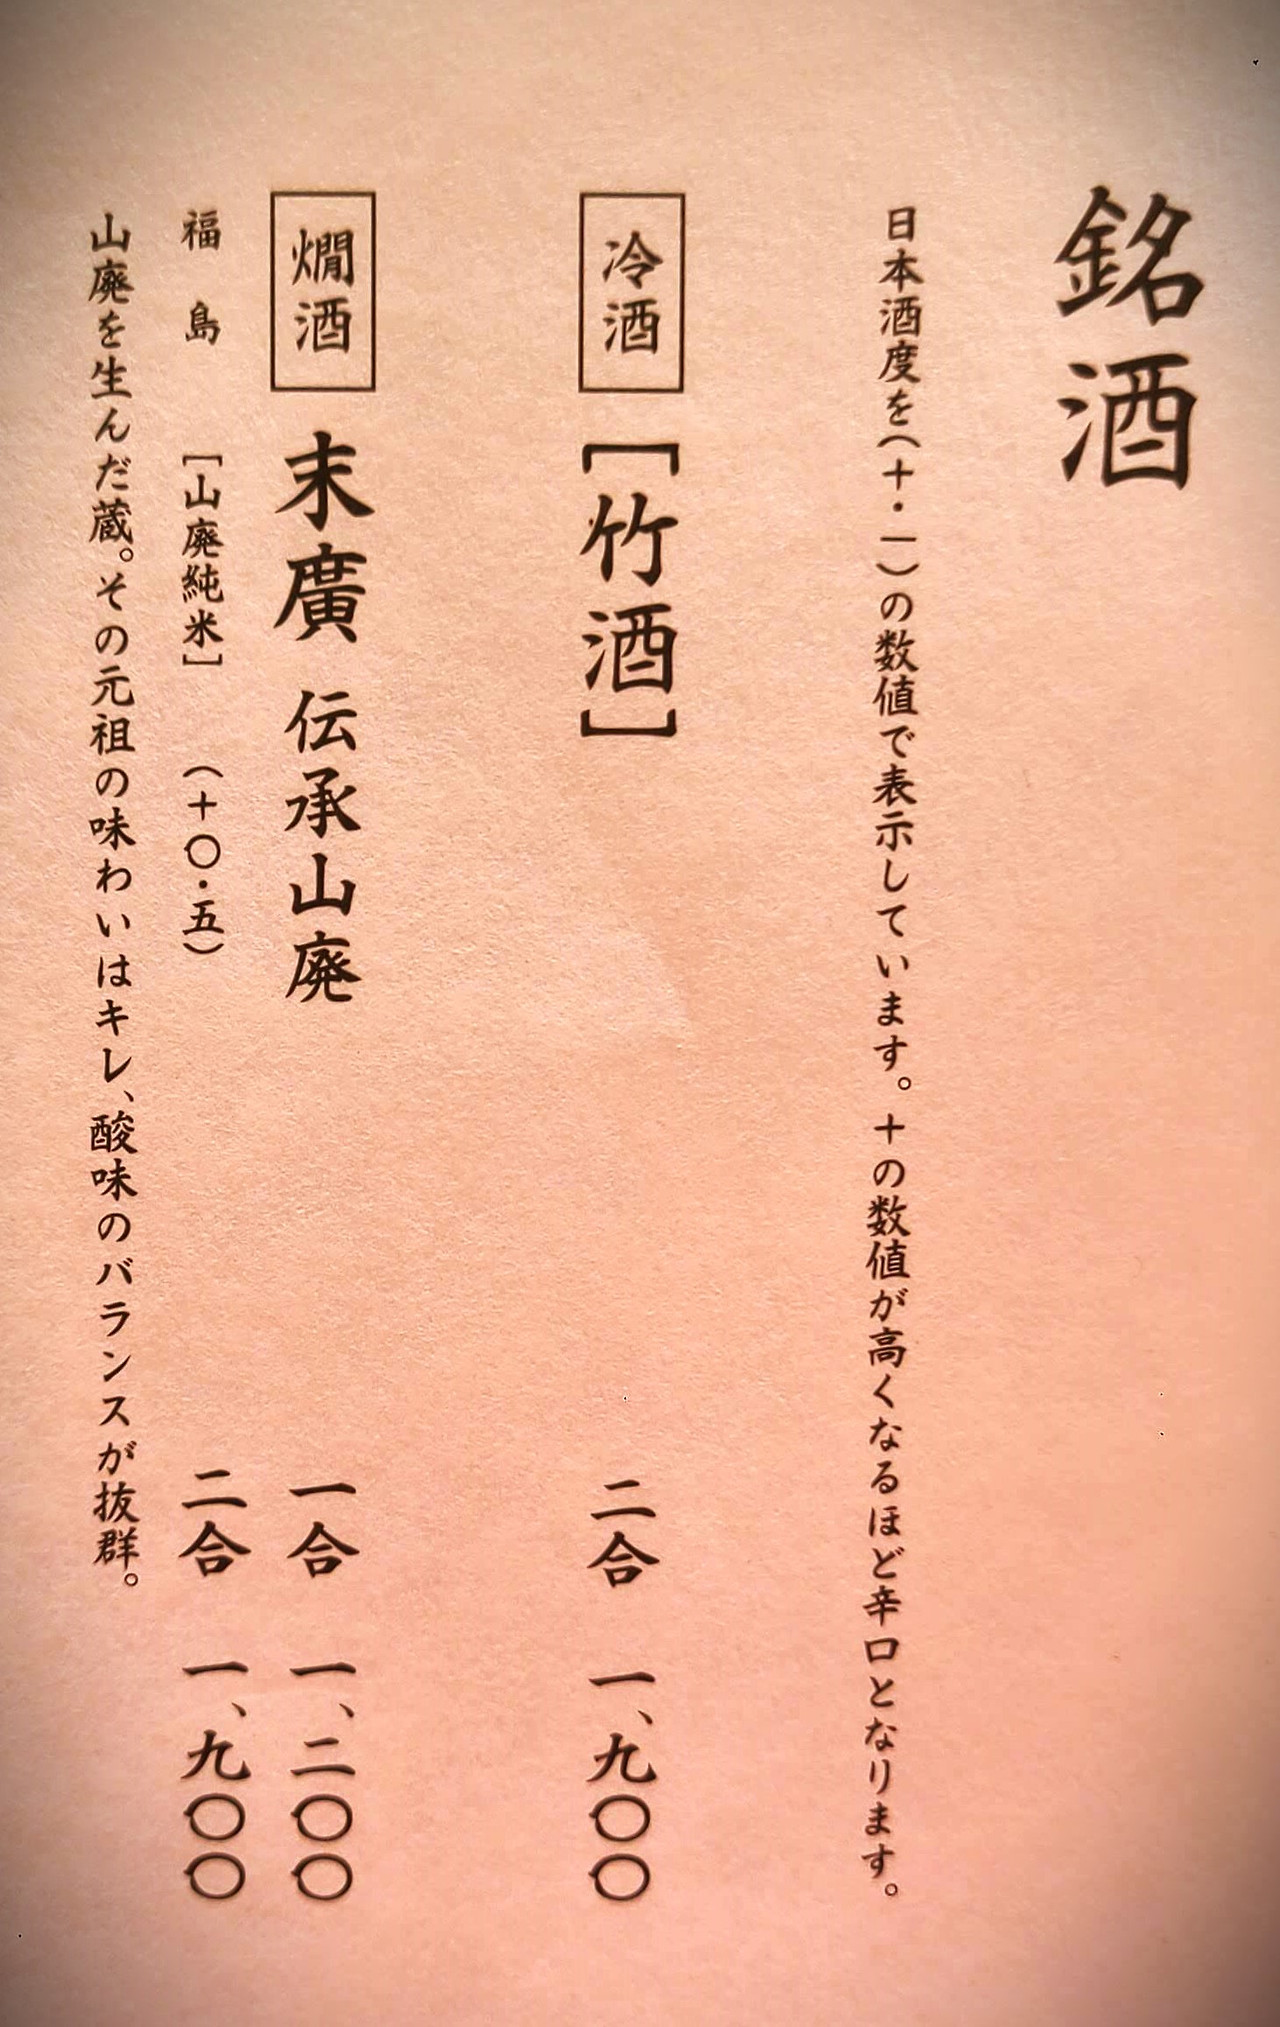 銘酒
日本酒度を(＋・－)の数値で表示しています。＋の数値が高くなるほど辛口となります。
冷酒 [竹酒] 二合 一、九〇〇
燗酒 末廣 伝承山廃 一合 一、二〇〇
福島 [山廃純米] (＋〇・五) 二合 一、九〇〇
山廃を生んだ蔵。その元祖の味わいはキレ、酸味のバランスが抜群。